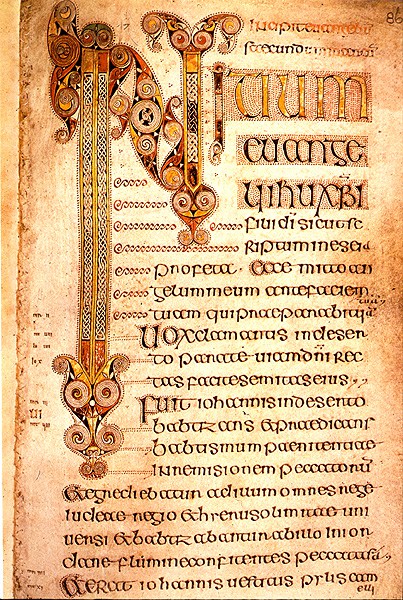 86
INITIUM
EUANGE
LII IHU XPI
filii di sicut sc
riptum in eseia
profeta Ecce mitto an
gelum meum ante faciem
tuam qui praeparabit uiam
tuam
Uox clamantis in deser
to parate uiam dni rec
tas facite semitas eius
Fuit iohannis in deserto
babtizans et praedicans
babtismum paenitentiae
in remisionem peccatorū
Et egrediebatur ad illum omnes
iudeae regio et hierusolimitae uni
uersi et babtizabantur ab illo in ior
dane flumine confitentes peccata sua
Et erat iohannis uestitus pylis cam
eli